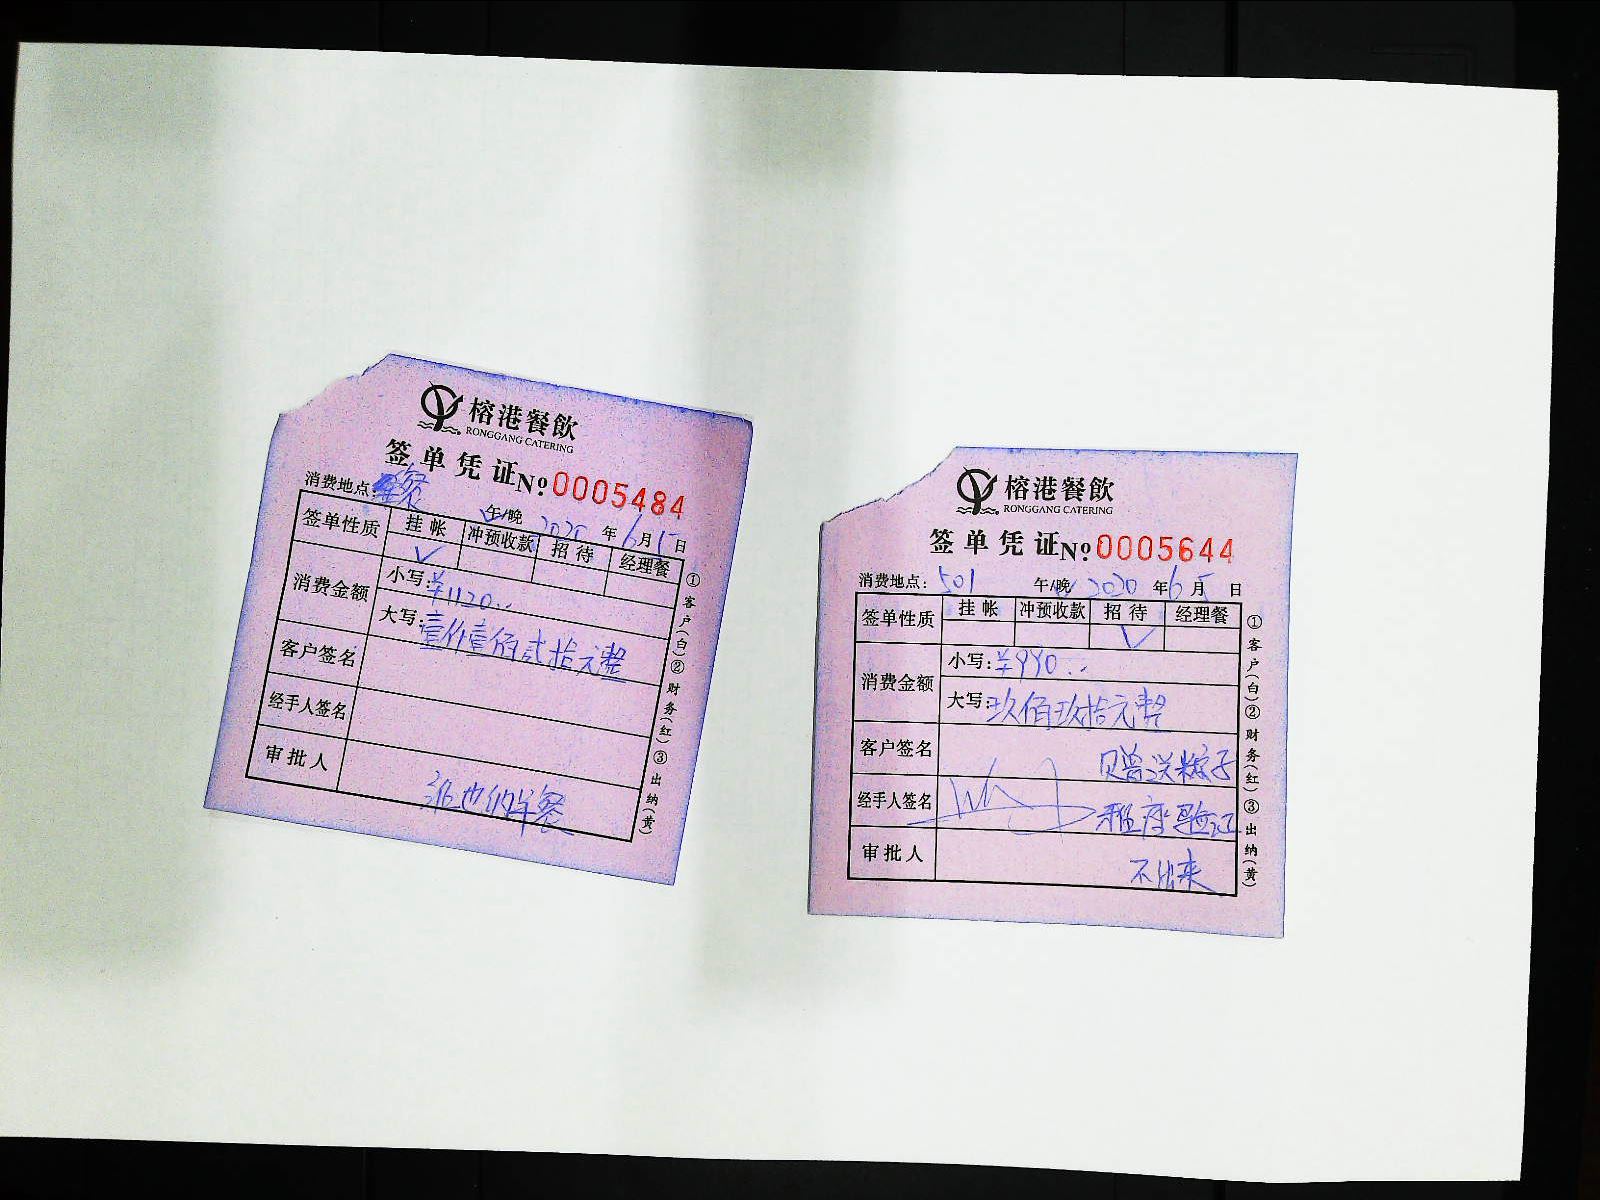 榕港餐飲
RONGGANG CATERING
签单凭证 No 0005484
消费地点:
午/晚 2020 年 6 月 5 日
签单性质 挂帐 冲预收款 招待 经理餐
✓
消费金额 小写: ¥1120..
大写: 壹仟壹佰贰拾元整
客户签名
经手人签名
审批人
午餐
①客户(白)②财务(红)③出纳(黄)
榕港餐飲
RONGGANG CATERING
签单凭证 No 0005644
消费地点: 501 午/晚 2020 年 6 月 5 日
签单性质 挂帐 冲预收款 招待 经理餐
✓
消费金额 小写: ¥990..
大写: 玖佰玖拾元整
客户签名 赠送粽子
经手人签名 雅座验证
审批人 不出来
①客户(白)②财务(红)③出纳(黄)